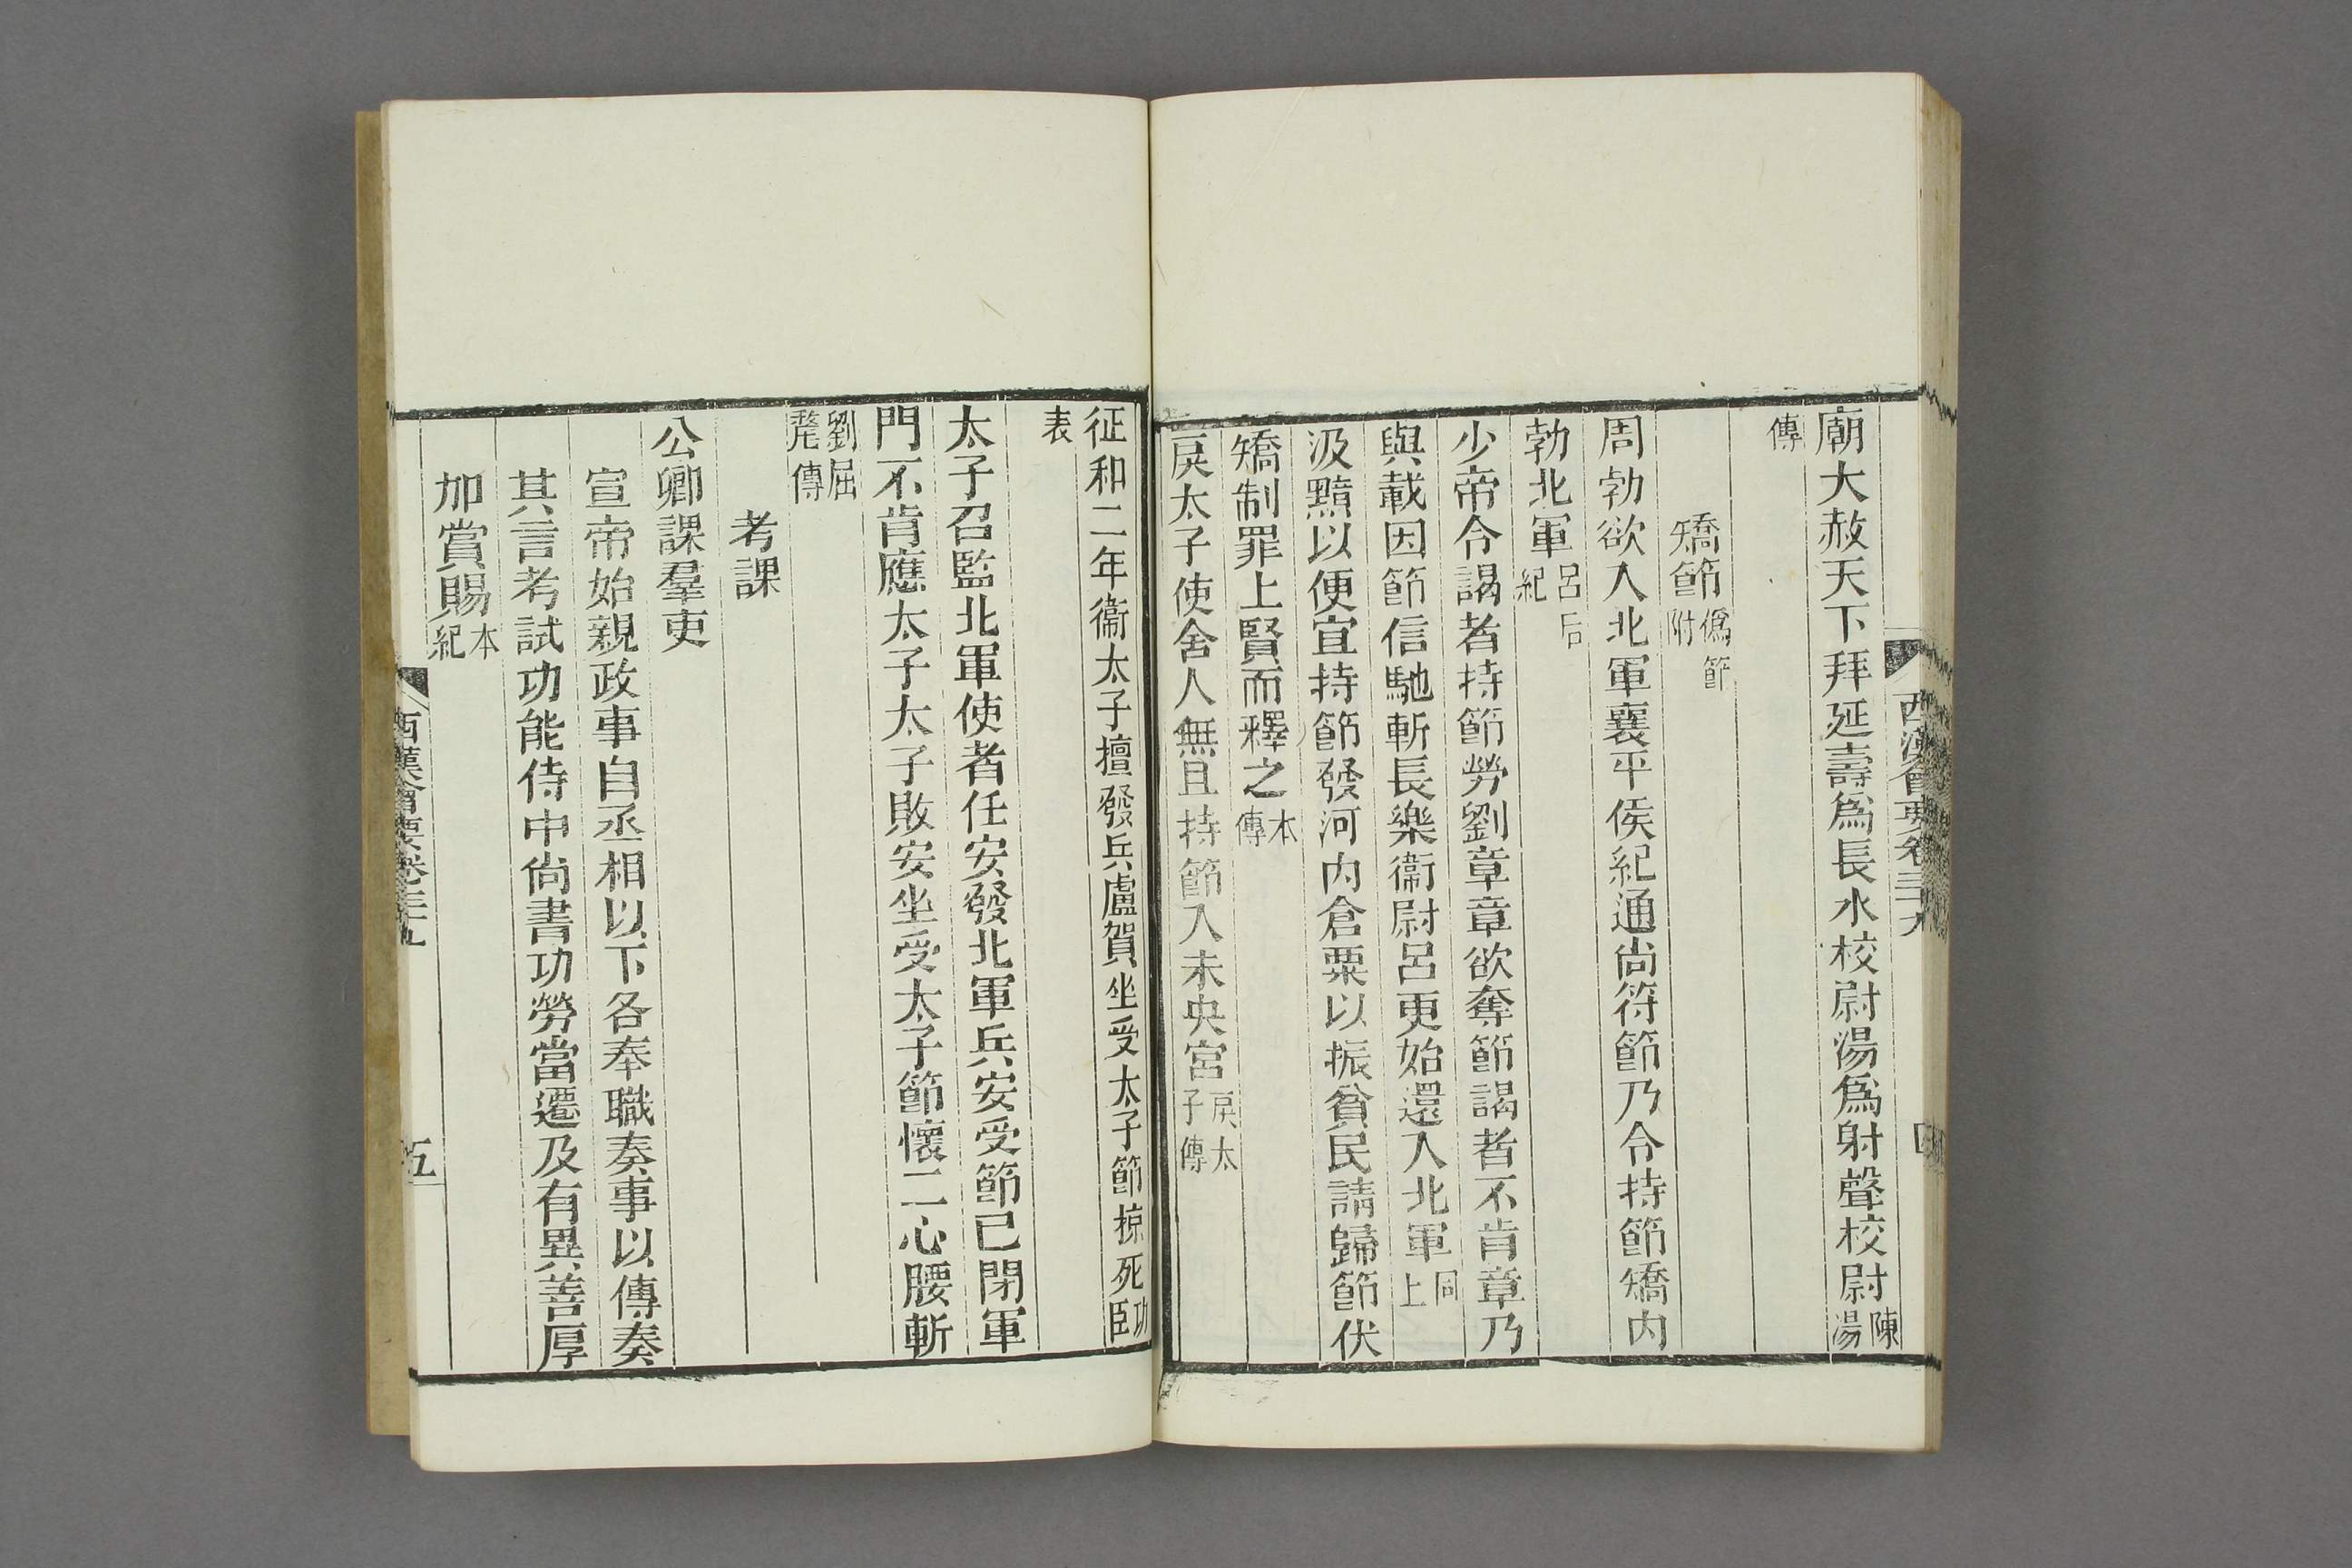 廟大赦天下拜延壽爲長水校尉湯爲射聲校尉陳湯
傳
矯節僞節附
周勃欲入北軍襄平侯紀通尚符節乃令持節矯內
勃北軍呂后紀
少帝令謁者持節勞劉章章欲奪節謁者不肯章乃
與載因節信馳斬長樂衞尉呂更始還入北軍同上
汲黯以便宜持節發河內倉粟以振貧民請歸節伏
矯制罪上賢而釋之本傳
戾太子使舍人無且持節入未央宮戾太子傳
征和二年衞太子擅發兵盧賀坐受太子節掠死功臣
表
太子召監北軍使者任安發北軍兵安受節已閉軍
門不肯應太子太子敗安坐受太子節懷二心腰斬
劉屈氂傳
考課
公卿課羣吏
宣帝始親政事自丞相以下各奉職奏事以傳奏
其言考試功能侍中尚書功勞當遷及有異善厚
加賞賜本紀
西漢會要卷三十九
五